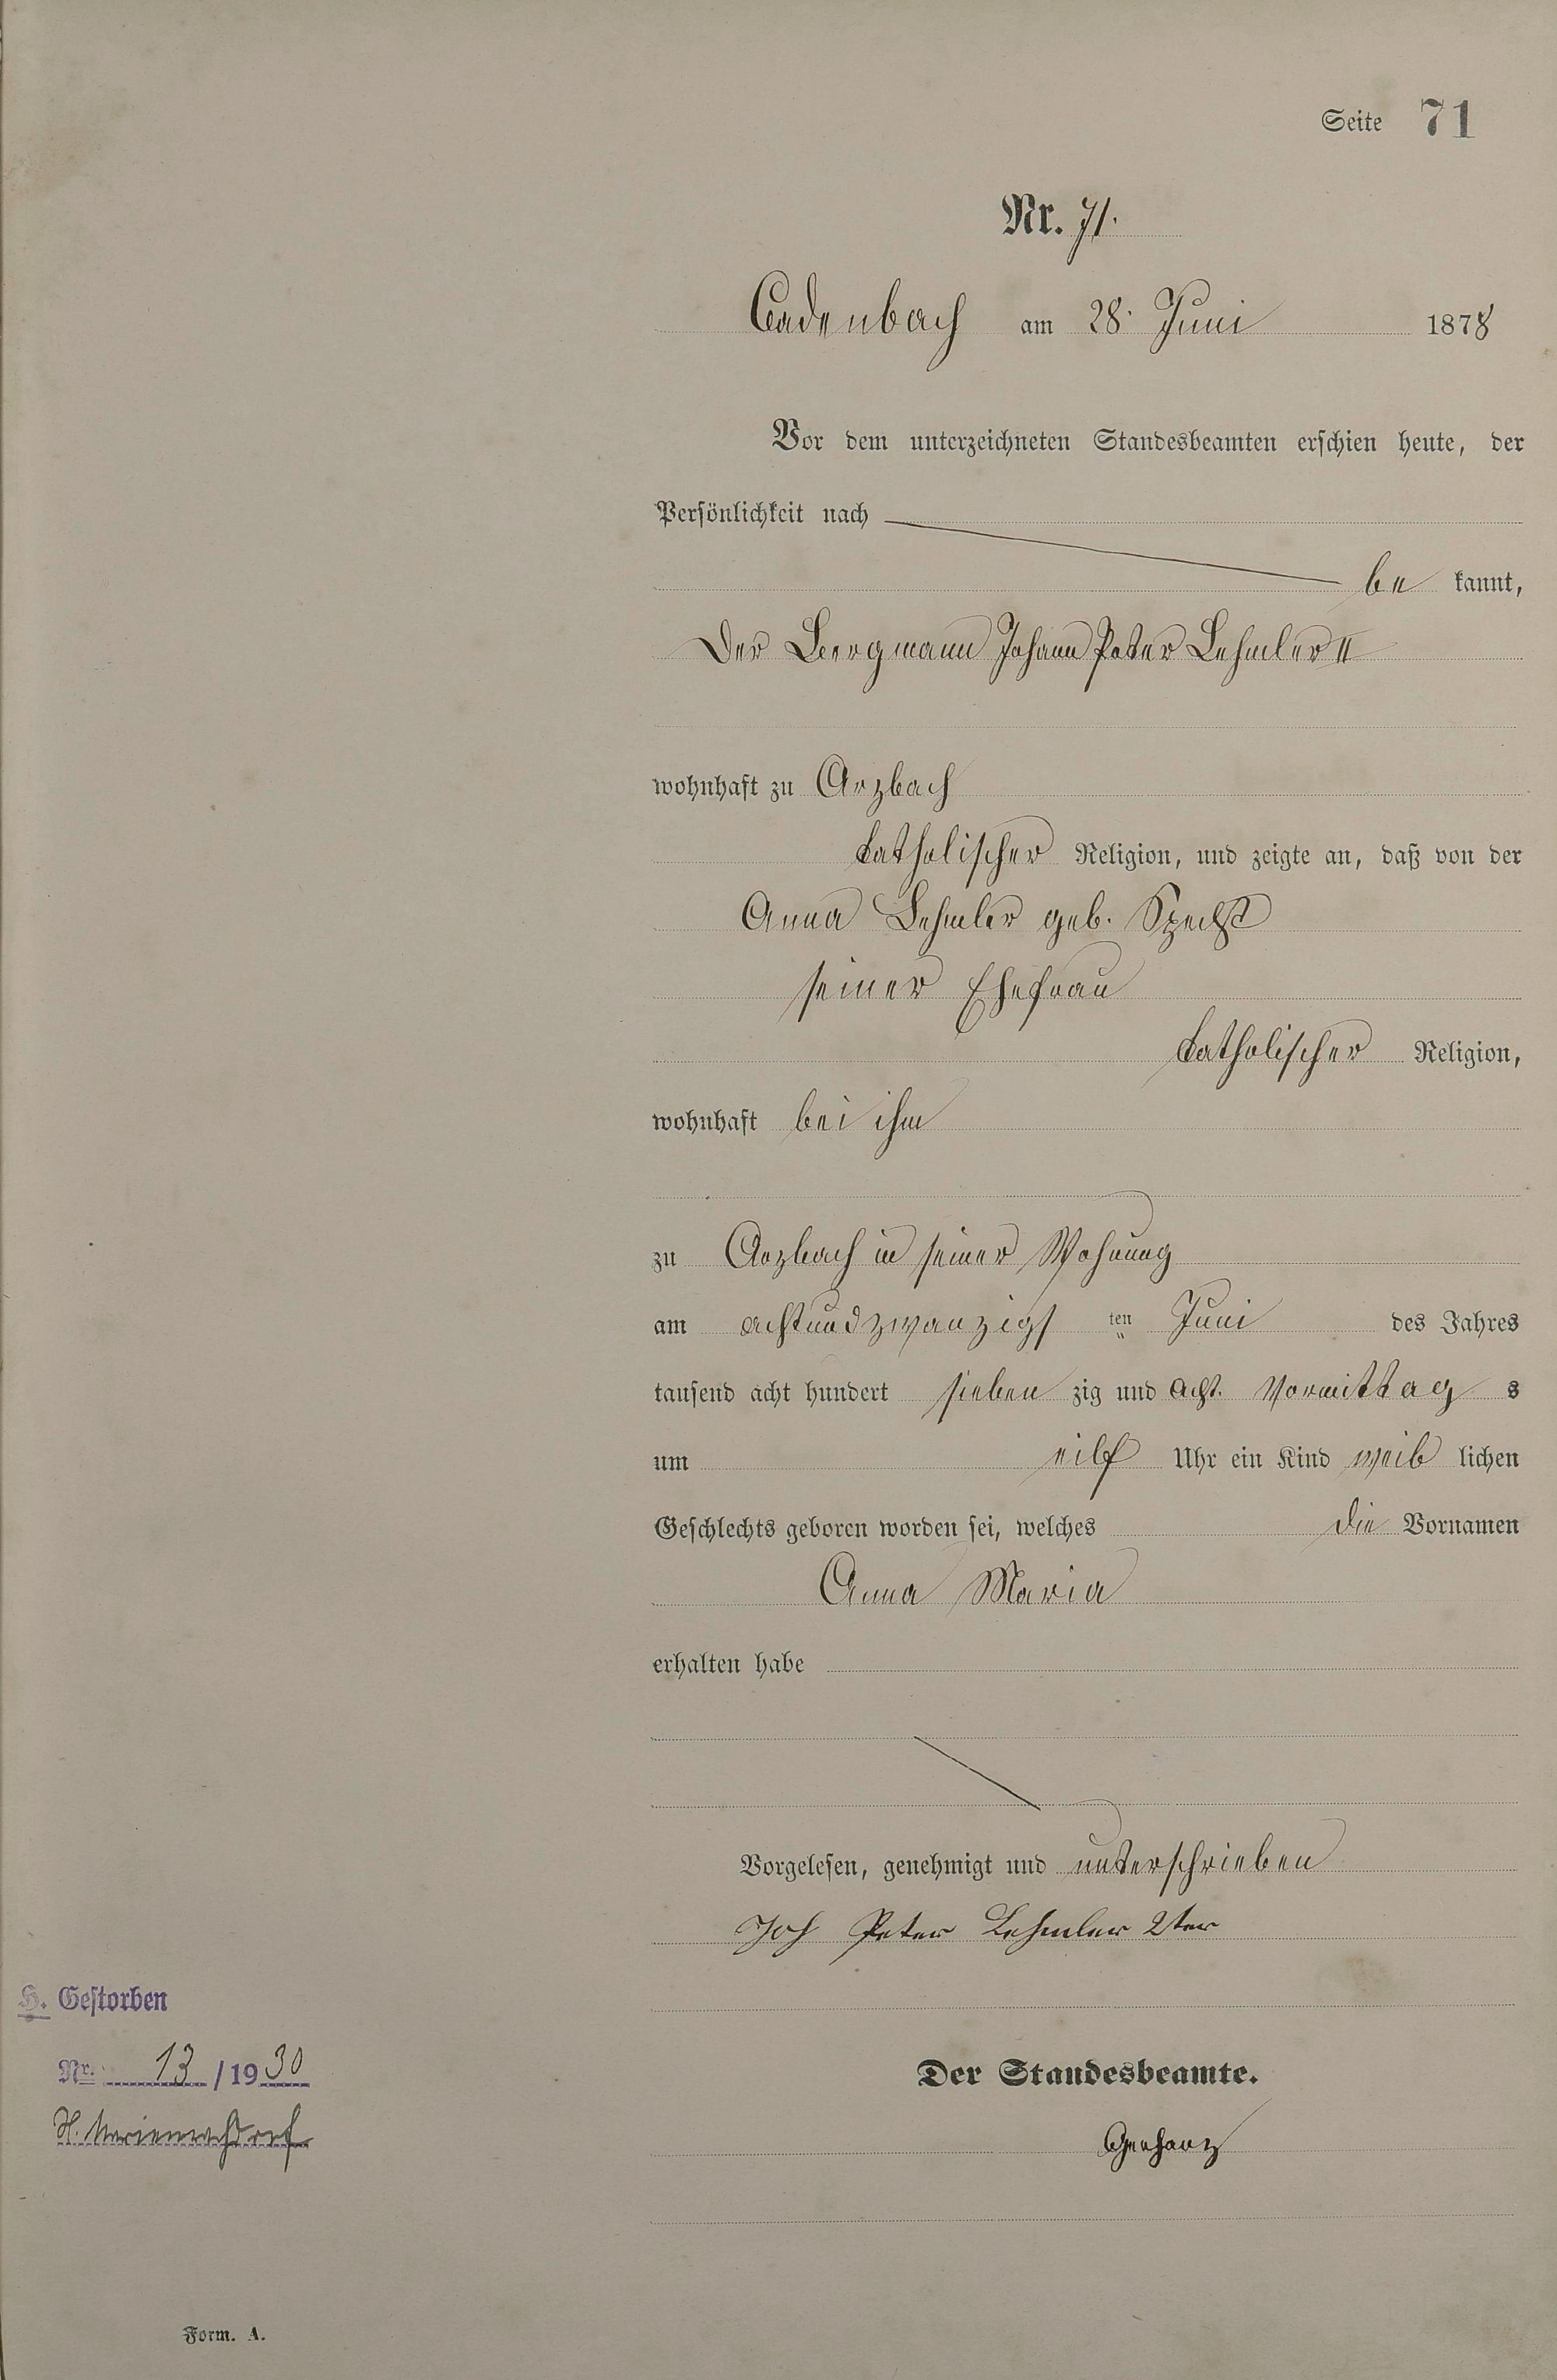 Seite 71
Nr. 71.
Cadenbach am 28. Juni 1878
Vor dem unterzeichneten Standesbeamten erschien heute, der
Persönlichkeit nach
be kannt,
Der Bergmann Johann Peter Lehmler II
wohnhaft zu Arzbach
katholischer Religion, und zeigte an, daß von der
Anna Lehmler geb. Specht
seiner Ehefrau
katholischer Religion,
wohnhaft bei ihm
zu Arzbach in seiner Wohnung
am achtundzwanzigs ten Juni des Jahres
tausend acht hundert sieben zig und acht. Vormittag s
um eilf Uhr ein Kind weib lichen
Geschlechts geboren worden sei, welches die Vornamen
Anna Maria
erhalten habe
Vorgelesen, genehmigt und unterschrieben
Joh Peter Lehmler 2ter
H. Gestorben
Nr. 13 / 1930
Der Standesbeamte.
Gerharz
Form. A.